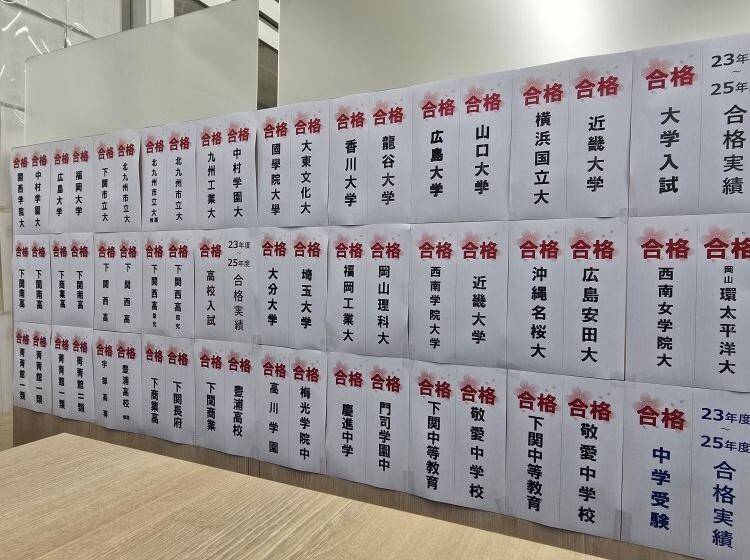 23年
～
25年
合格実績
合格
大学入試
合格
近畿大学
合格
横浜国立大
合格
山口大学
合格
広島大学
合格
龍谷大学
合格
香川大学
合格
大東文化大
合格
國學院大學
合格
中村学園大
合格
九州工業大
合格
北九州市立大
合格
北九州市立大
合格
下関市立大
合格
下関市立大
合格
福岡大学
合格
広島大学
合格
中村学園大
合格
関西学院大
合格
岡山
環太平洋大
合格
西南女学院大
合格
広島安田大
合格
沖縄名桜大
合格
近畿大学
合格
西南学院大学
合格
岡山理科大
合格
福岡工業大
合格
埼玉大学
合格
大分大学
23年度
～
25年度
合格実績
合格
高校入試
合格
下関西高
合格
下関西高
合格
下関西高
合格
下関西高
合格
下関南高
合格
下商業高
合格
下関南高
合格
下関南高
23年度
～
25年度
合格実績
合格
中学受験
合格
敬愛中学校
合格
下関中等教育
合格
敬愛中学校
合格
下関中等教育
合格
門司学園中
合格
慶進中学
合格
梅光学院中
合格
高川学園
合格
豊浦高校
合格
下関商業
合格
下関長府
合格
下商業高
合格
豊浦高校
合格
宇部高専
合格
合格
合格
合格